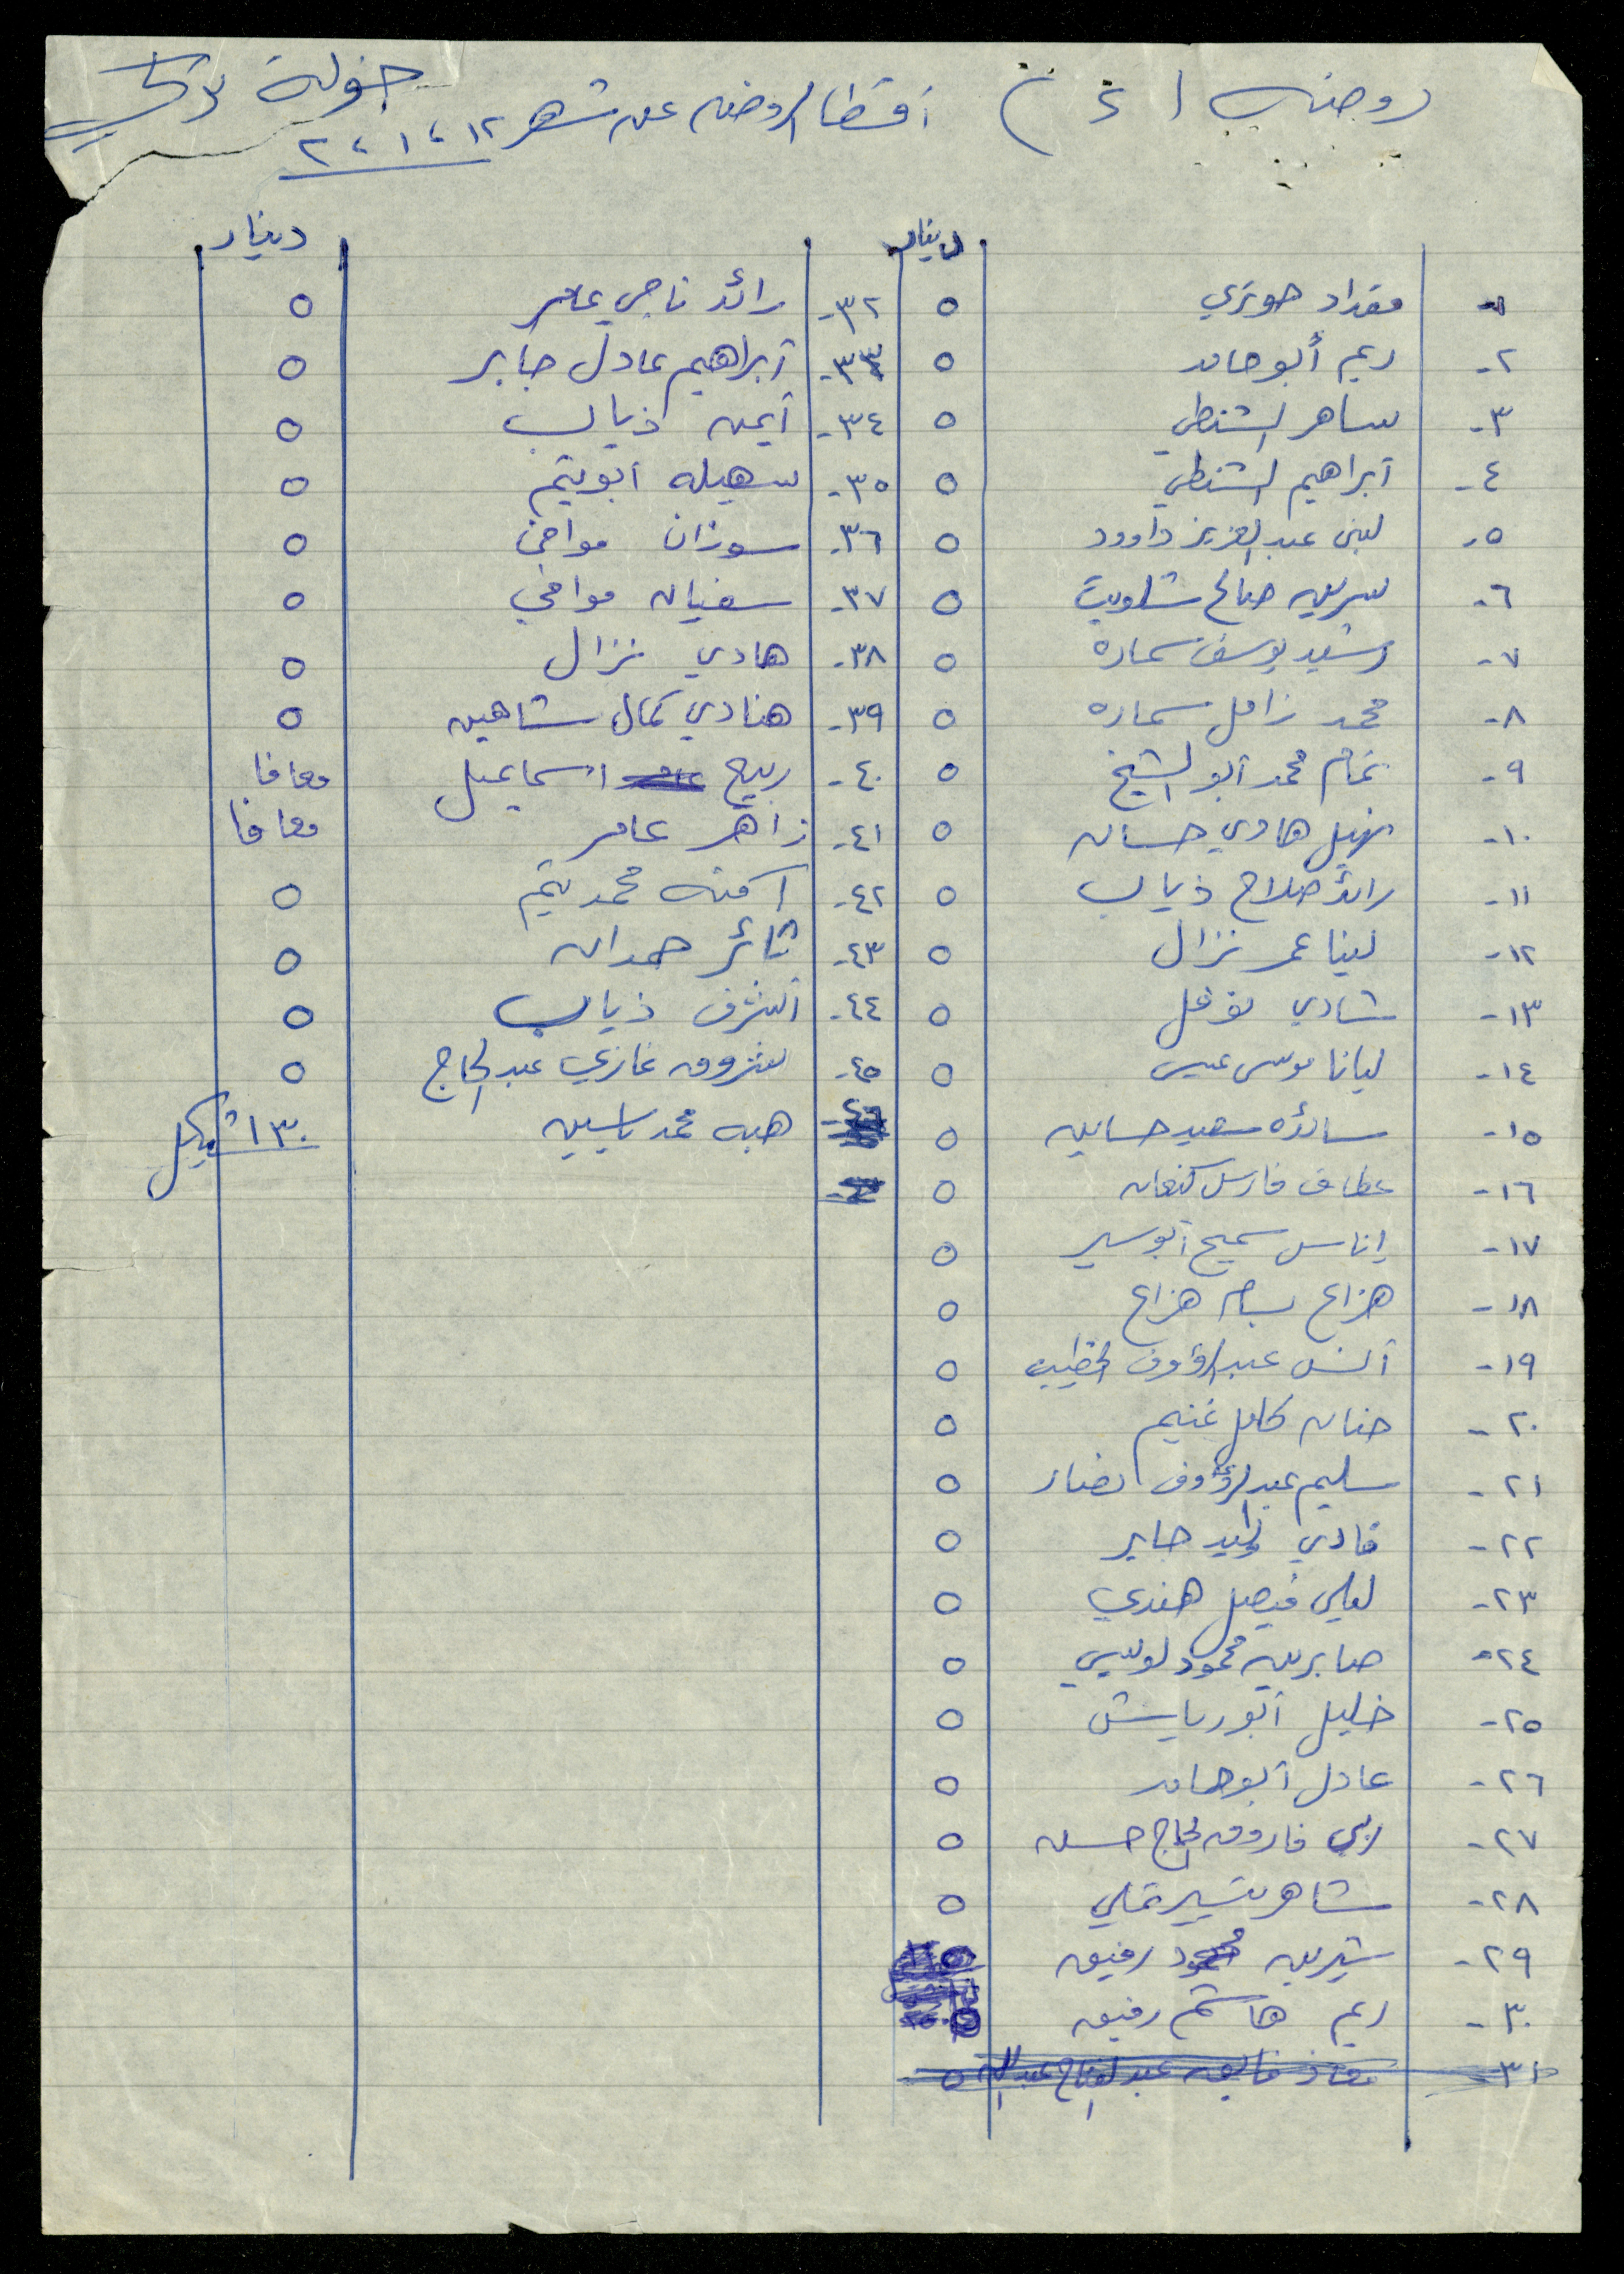 روضة (٤) أقساط الروضه عن شهر ١٢، ١، ٢ خولة
دينار
١- مقداد حوتري ٥
٢- ريم أبو حامد ٥
٣- ساهر الشنطي ٥
٤- ابراهيم الشنطي ٥
٥- لبنى عبد العزيز داوود ٥
٦- سرين صالح ٥
٧- رشيد يوسف سماره ٥
٨- محمد زامل سماره ٥
٩- تمام محمد أبو الشيخ ٥
١٠- نهيل هادي حسان ٥
١١- رائد صلاح ذياب ٥
١٢- لينا عمر نزال ٥
١٣- شادي نوفل ٥
١٤- ليانا موسى عيسى ٥
١٥- سائده سعيد حسانين ٥
١٦- عطاف فارس كنعان ٥
١٧- إناس سميح أبو سير ٥
١٨- هزاع بسام هزاع ٥
١٩- أنس عبد الرؤوف الخطيب ٥
٢٠- حنان كامل غنيم ٥
٢١- سليم عبد الرؤوف نصار ٥
٢٢- فادي وليد جابر ٥
٢٣- ليلى فيصل هندي ٥
٢٤- صابرين محمود ٥
٢٥- خليل أبو رياش ٥
٢٦- عادل أبو حامد ٥
٢٧- ربى فاروق الحاج حسن ٥
٢٨- شاهر تيسير ٥
٢٩- شيرين محمود رفيق
٣٠- ريم هاشم رفيق
٣١- معاذ فايق عبد الفتاح عبد الله ٥
دينار
٣٢- رائد ناجي عامر ٥
٣٣- ابراهيم عادل جابر ٥
٣٤- أيمن ذياب ٥
٣٥- سهيله أبو يتيم ٥
٣٦- سوزان موافي ٥
٣٧- سفيان موافي ٥
٣٨- هادي نزال ٥
٣٩- هنادي كمال شاهين ٥
٤٠- ربيع اسماعيل معافا
٤١- زاهر عامر معافا
٤٢- آمنه محمد يتيم ٥
٤٣- ثائر حمدان ٥
٤٤- أشرف ذياب ٥
٤٥- شروق غازي عبد الحاج ٥
٤٦- هبه محمد ياسين ١٣٠ شيكل